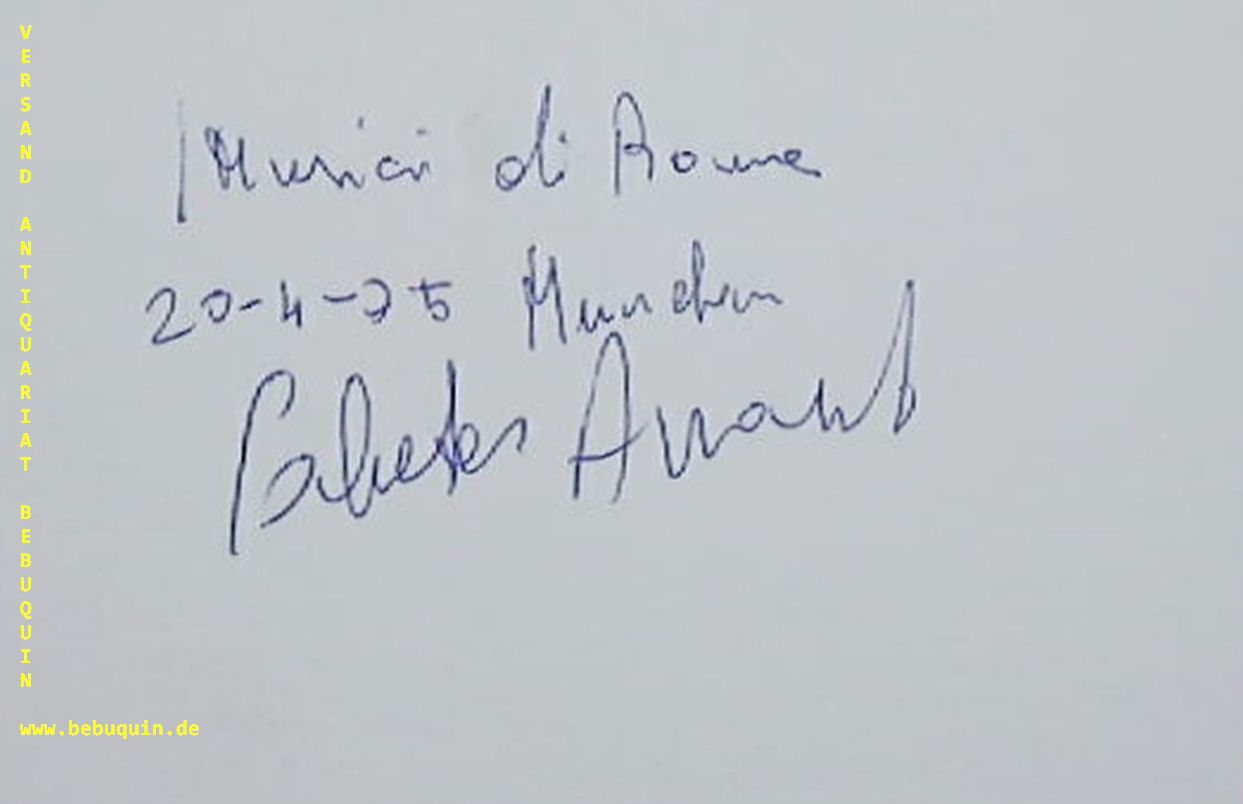 VERSAND ANTIQUARIAT BEBUQUIN
I Musici di Roma
20-4-75 Munchen
Salvatore Accardo
www.bebuquin.de